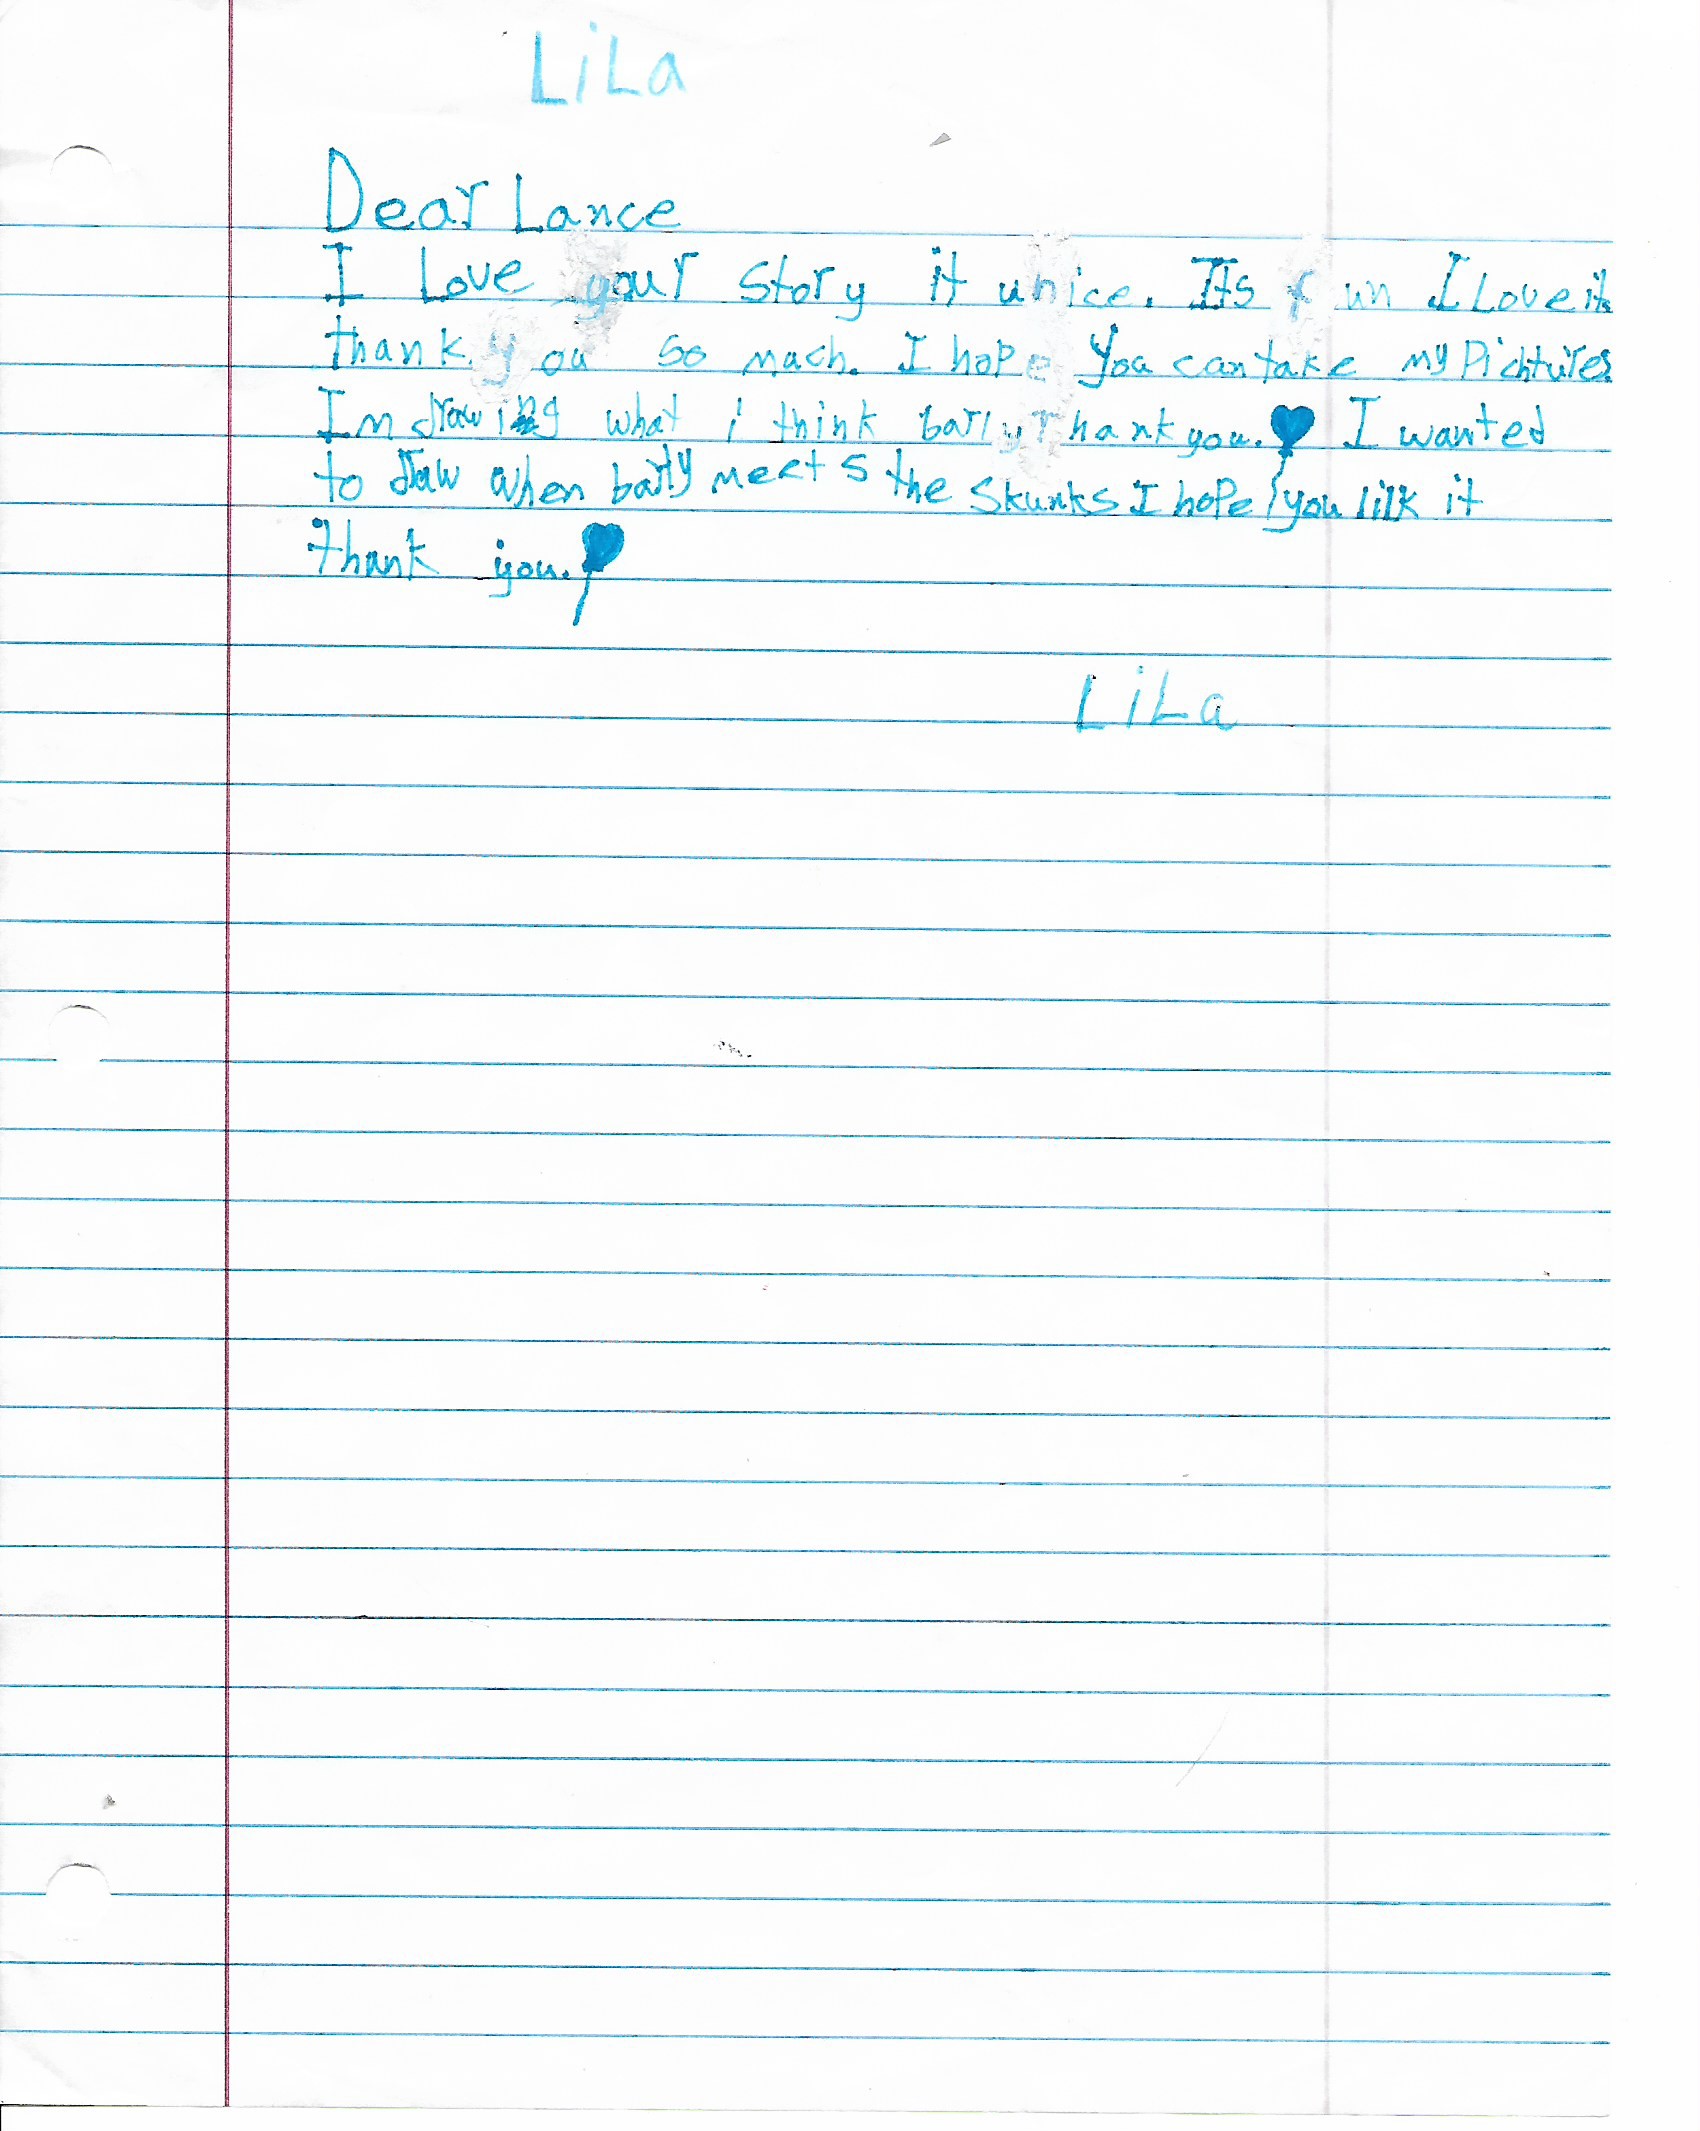 LiLa
Dear Lance
I Love your story it unice. Its fun I Love it.
thank you so mach. I hope you can take my Pichtures
Im drawing what i think barly Thank you. I wanted
to draw when barly meets the skunks I hope you lilk it
thank you.
LiLa